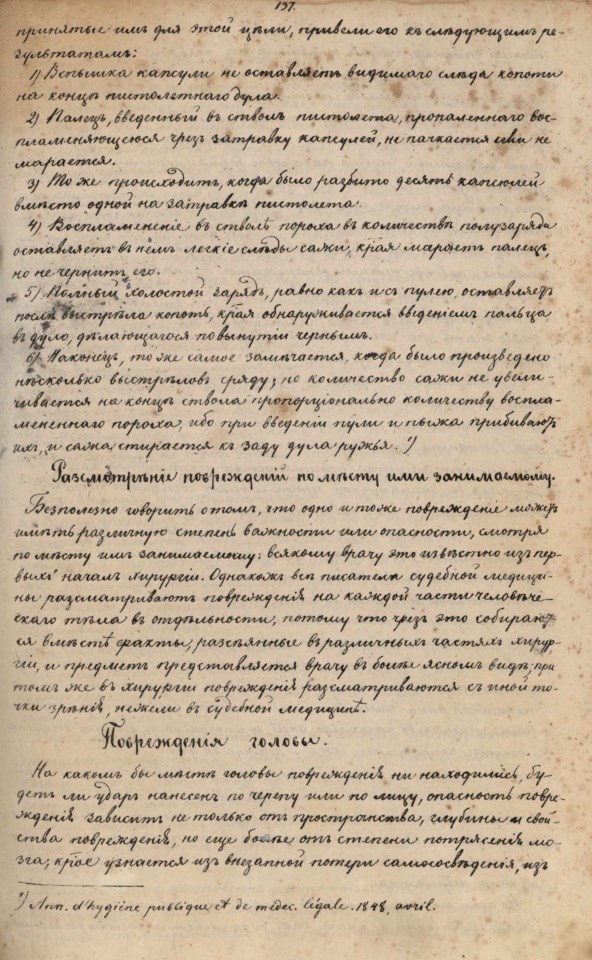 137.
принятые имъ для этой цѣли, привели его къ слѣдующимъ ре-
зультатамъ:
1) Вспышка капсули не оставляетъ видимаго слѣда копоти
на концѣ пистолетнаго дула.
2) Палецъ, введенный въ стволъ пистолета, пропаленнаго вос-
пламеняющеюся чрезъ затравку капсулей, не пачкается или не
марается.
3) То же происходитъ, когда было разбито десять капсюлей
вмѣсто одной на затравкѣ пистолета.
4) Воспламененіе въ стволѣ пороха въ количествѣ полузаряда
оставляетъ въ нёмъ легкіе слѣды сажи, края мараетъ палецъ,
но не чернитъ его.
5) Полный холостой зарядъ, равно какъ и съ пулею, оставляетъ
послѣ выстрѣла копоть, края обнаруживается введеніемъ пальца
въ дуло, дѣлающагося по вынутіи чернымъ.
6) Наконецъ, то же самое замѣчается, когда было произведено
нѣсколько выстрѣловъ сряду; но количество сажи не увели-
чивается на концѣ ствола пропорціонально количеству воспла-
мененнаго пороха, ибо при введеніи пули и пыжа прибиваютъ
ихъ, и сажа стирается къ заду дула ружья. ¹)
Разсмотрѣніе поврежденій по мѣсту ими занимаемому.
Безполезно говорить о томъ, что одно и тоже поврежденіе можетъ
имѣть различную степень важности или опасности, смотря
по мѣсту имъ занимаемому; всякому врачу это извѣстно изъ пер-
выхъ началъ хирургіи. Однакожъ всѣ писатели судебной медици-
ны разсматриваютъ поврежденія на каждой части человѣче-
скаго тѣла въ отдѣльности, потому что чрезъ это собираю-
ся вмѣстѣ факты, разсѣянные въ различныхъ частяхъ хирур-
гіи, и предметъ представляется врачу въ болѣе ясномъ видѣ, при
томъ же въ хирургіи поврежденія разсматриваются съ иной то-
чки зрѣнія, нежели въ судебной медицинѣ.
Поврежденія головы.
На какомъ бы мѣстѣ головы поврежденія ни находились, бу-
детъ ли ударъ нанесенъ по черепу или по лицу, опасность повре-
жденія зависитъ не только отъ пространства, глубины и свой-
ства поврежденія, но еще болѣе отъ степени потрясенія мо-
зга, крое узнается изъ внезапной потери самосовѣденія, изъ
¹) Ann. d'hygiène publique et de médec. légale. 1848, avril.